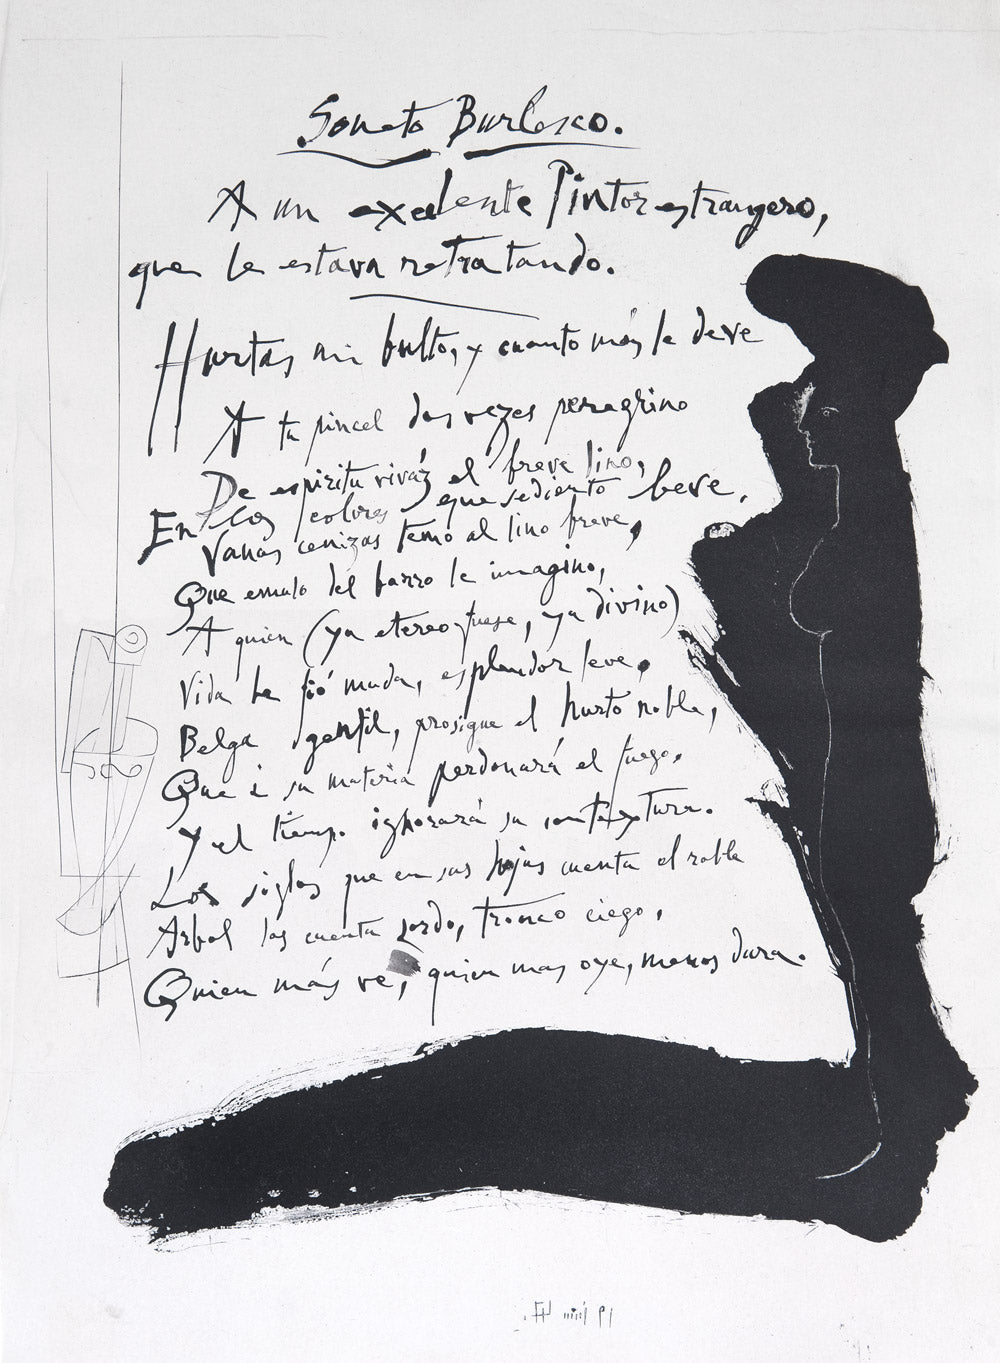 Soneto Burlesco.
A un exelente Pintor estrangero,
que le estava retratando.
Hurtas mi bulto, y cuanto más le deve
A tu pincel dos vezes peregrino
De espiritu viváz el breve lino,
En los colores que sediento beve.
Vanas cenizas temo al lino breve,
Que emulo del barro le imagino,
A quien (ya etereo fuese, ya divino)
Vida le fió muda, esplendor leve.
Belga gentil, prosigue el hurto noble,
Que a su materia perdonará el fuego,
Y el tiempo ignorará su contextura.
Los siglos que en sus hojas cuenta el roble
Arbol los cuenta sordo, tronco ciego,
Quien más ve, quien mas oye, menos dura.
19 juin 47.